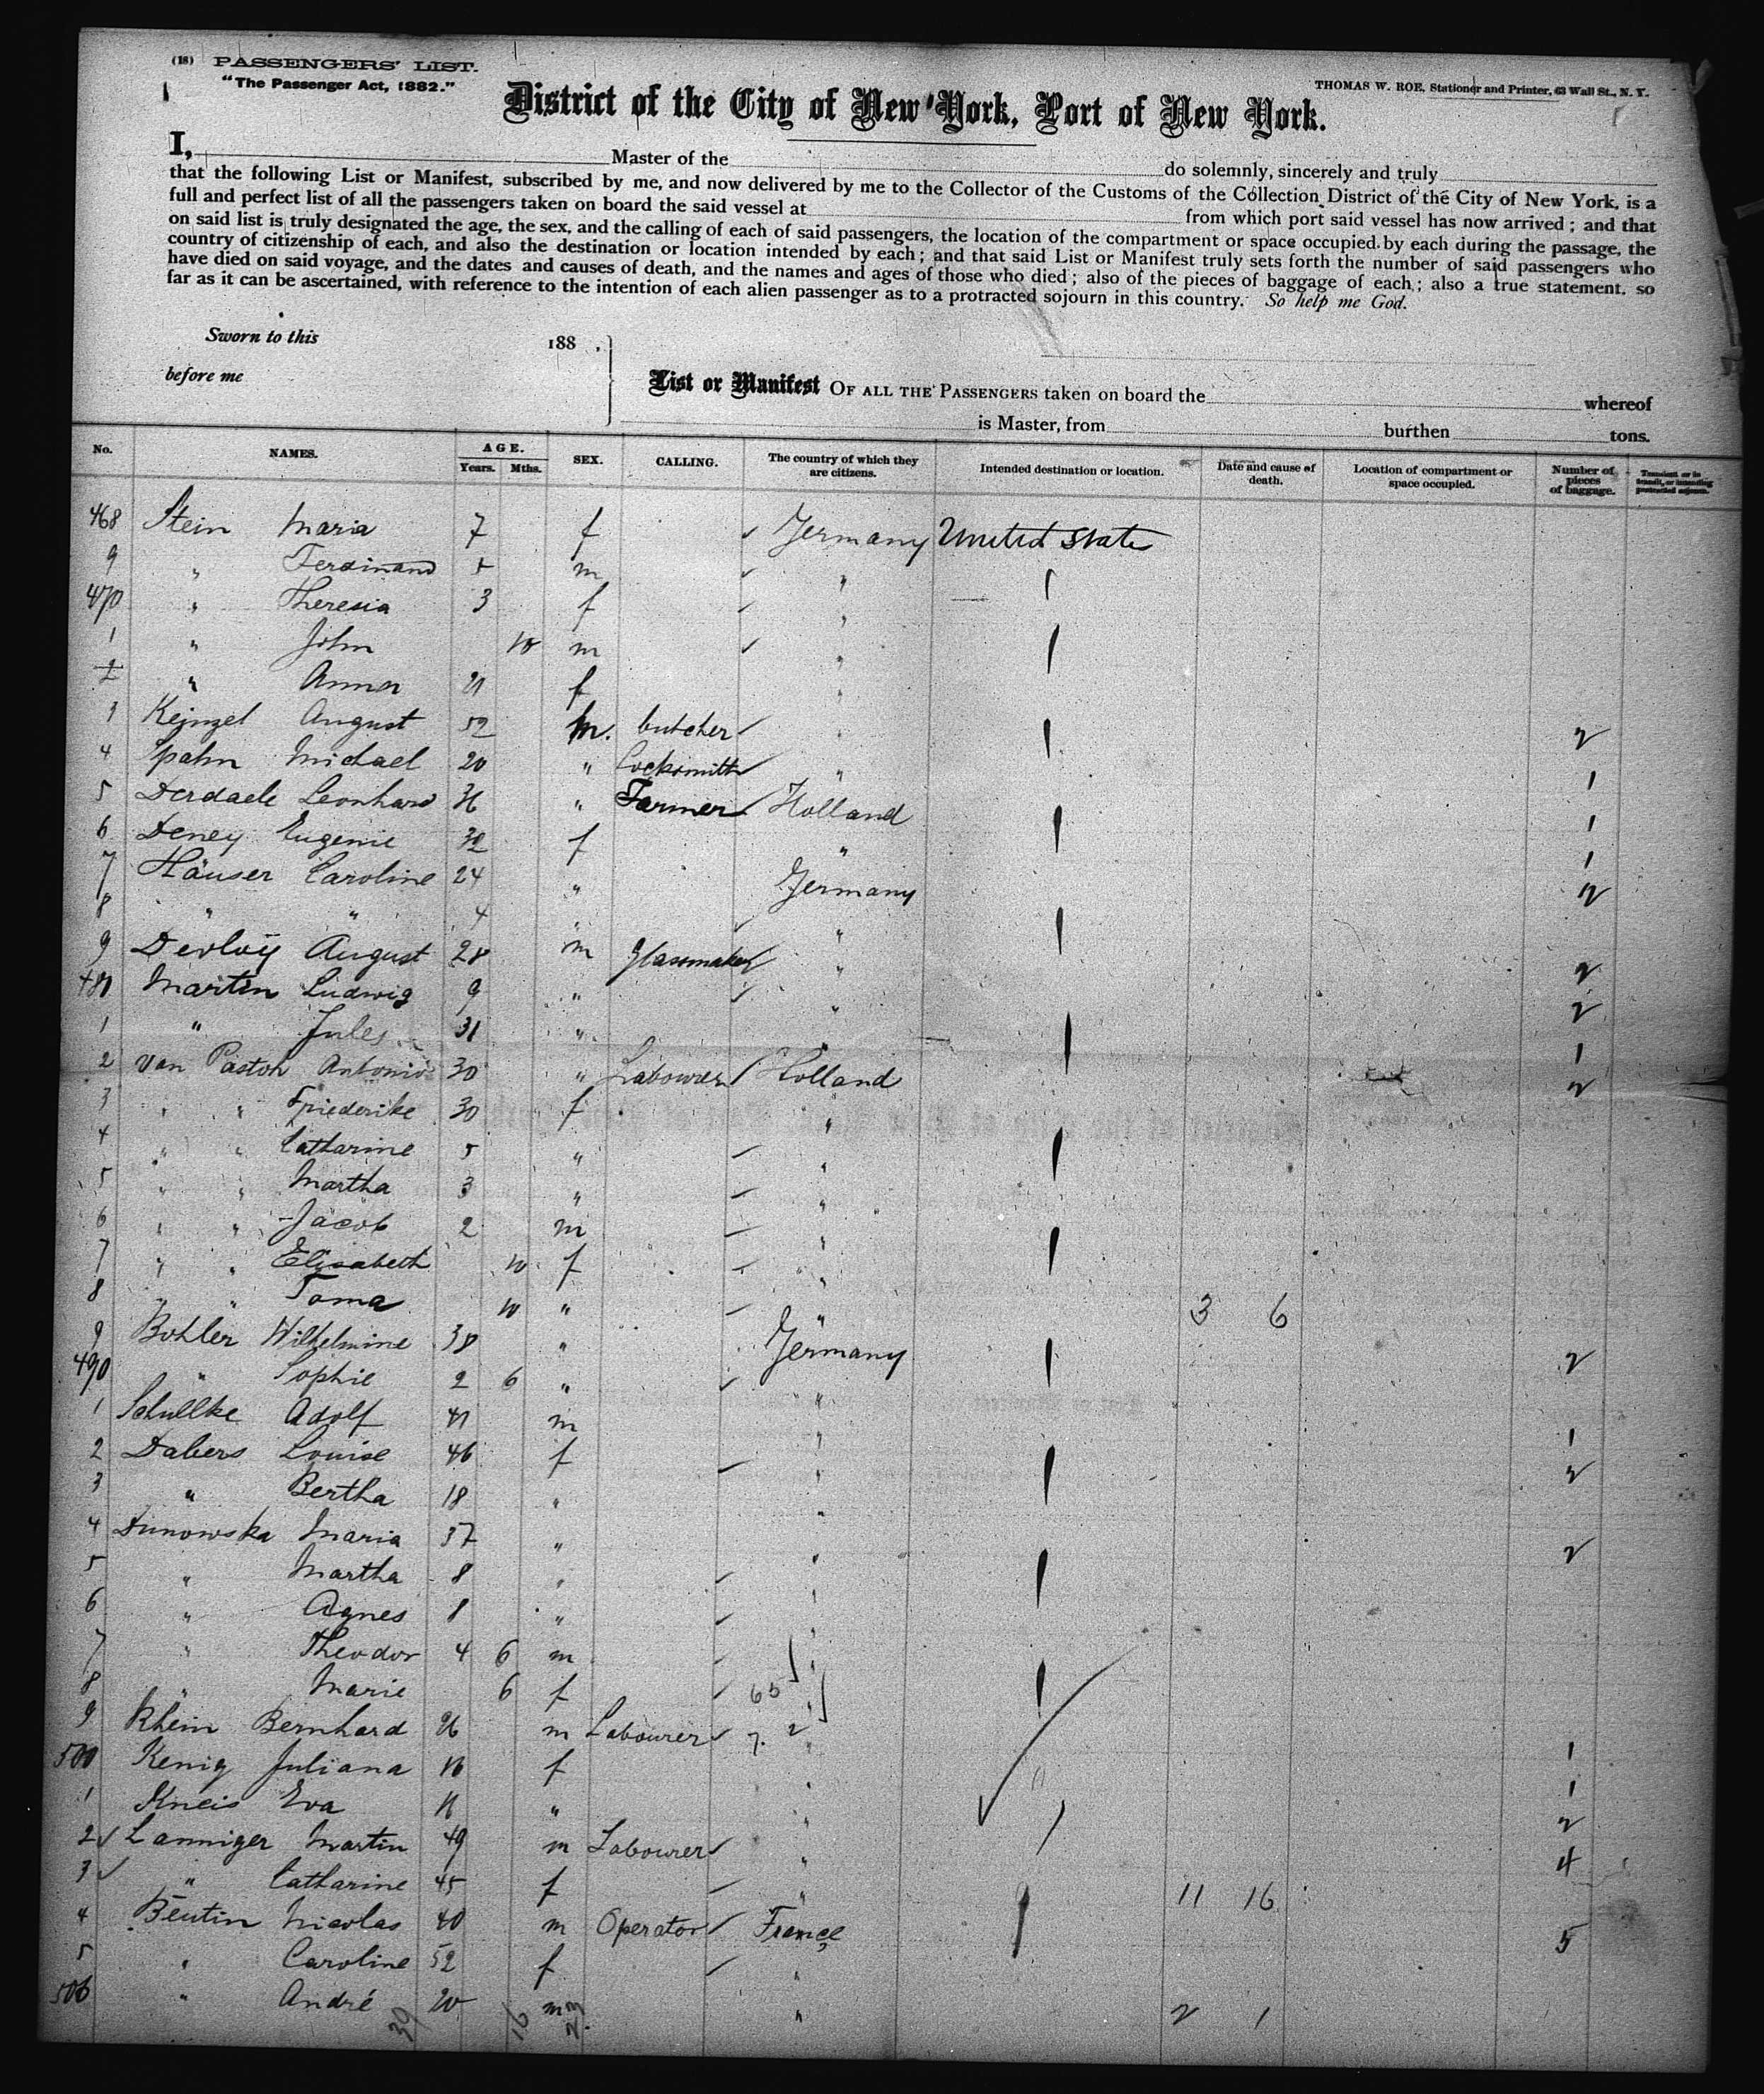 (18) PASSENGERS' LIST.
"The Passenger Act, 1882."
THOMAS W. ROE, Stationer and Printer, 63 Wall St., N. Y.
District of the City of New York, Port of New York.
I, Master of the do solemnly, sincerely and truly
that the following List or Manifest, subscribed by me, and now delivered by me to the Collector of the Customs of the Collection District of the City of New York, is a
full and perfect list of all the passengers taken on board the said vessel at from which port said vessel has now arrived; and that
on said list is truly designated the age, the sex, and the calling of each of said passengers, the location of the compartment or space occupied by each during the passage, the
country of citizenship of each, and also the destination or location intended by each; and that said List or Manifest truly sets forth the number of said passengers who
have died on said voyage, and the dates and causes of death, and the names and ages of those who died; also of the pieces of baggage of each; also a true statement, so
far as it can be ascertained, with reference to the intention of each alien passenger as to a protracted sojourn in this country. So help me God.
Sworn to this 188 .
before me
List or Manifest OF ALL THE PASSENGERS taken on board the whereof
is Master, from burthen tons.
No. NAMES. AGE. Years. Mths. SEX. CALLING. The country of which they are citizens. Intended destination or location. Date and cause of death. Location of compartment or space occupied. Number of pieces of baggage. Transient or in transit, or intending protracted sojourn.
468 Stein Maria 7 f Germany United States
9 " Ferdinand 5 m "
470 " Theresia 3 f "
1 " John 10 m "
2 " Anna 21 f "
3 Kejnzel August 52 m. butcher " 2
4 Spahn Michael 20 " Locksmith " 1
5 Derdaele Leonhard 36 " Farmer Holland 1
6 Deney Eugenie 32 f " 1
7 Häuser Caroline 24 " Germany 2
8 " " 4 " "
9 Devloy August 28 m Glasmaker " 2
480 Martin Ludwig 9 " " 2
1 " Jules 31 " " 1
2 Van Pastoh Antonio 30 " Labourer Holland 2
3 " " Friederike 30 f "
4 " " Catharine 5 " "
5 " " Martha 3 " "
6 " " Jacob 2 m "
7 " " Elisabeth 10 f "
8 " " Toma 10 " " 3 6
9 Bohler Wilhelmine 38 " Germany 2
490 " Sophie 2 6 " "
1 Schullke Adolf 41 m " 1
2 Dabers Louise 46 f " 2
3 " Bertha 18 " "
4 Dunowska Maria 37 " " 2
5 " Martha 8 " "
6 " Agnes 8 " "
7 " Theodor 4 6 m "
8 " Marie 6 f 65 "
9 Rhein Bernhard 26 m Labourer 7. 2 " 1
500 Kenig Juliana 16 f " 1
1 Kneis Eva " " 2
2 Lanniger Martin 49 m Labourer " 4
3 " Catharine 45 f " 11 16
4 Beutin Nicolas 40 m Operator France 5
5 " Caroline 52 f "
506 " André 20 m " 2 1
39 16 23